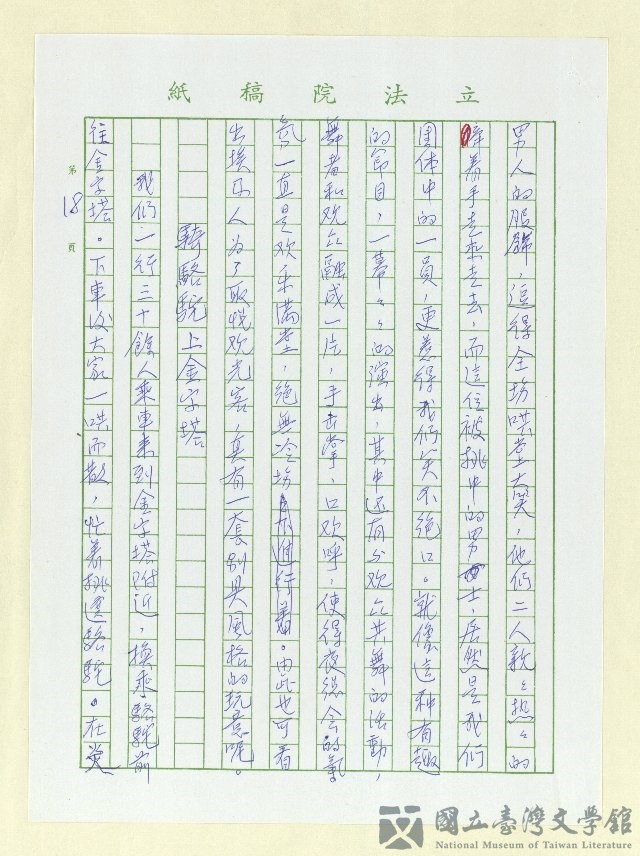 立法院稿紙
男人的服飾,逗得全場哄堂大笑,他們二人親々熱々的
牽着手走來走去,而這位被挑中的男士,居然是我們
團体中的一員,更惹得我們笑不絕口。就像這种有趣
的節目,一幕々々的演出,其中还有与欢众共舞的活動,
舞者和欢众融成一片,手击掌,口欢呼,使得夜總会的氣
氛一直是欢乐滿堂,絕無冷場進行着。由此也可看
出埃及人為了取悅欢光客,真有一套別具風格的玩意呢。
騎駱駝上金字塔
我們一行三十餘人乘車來到金字塔附近,換乘駱駝前
往金字塔。下車後大家一哄而散,忙着挑選駱駝。在
第18頁
國立臺灣文學館
National Museum of Taiwan Literature